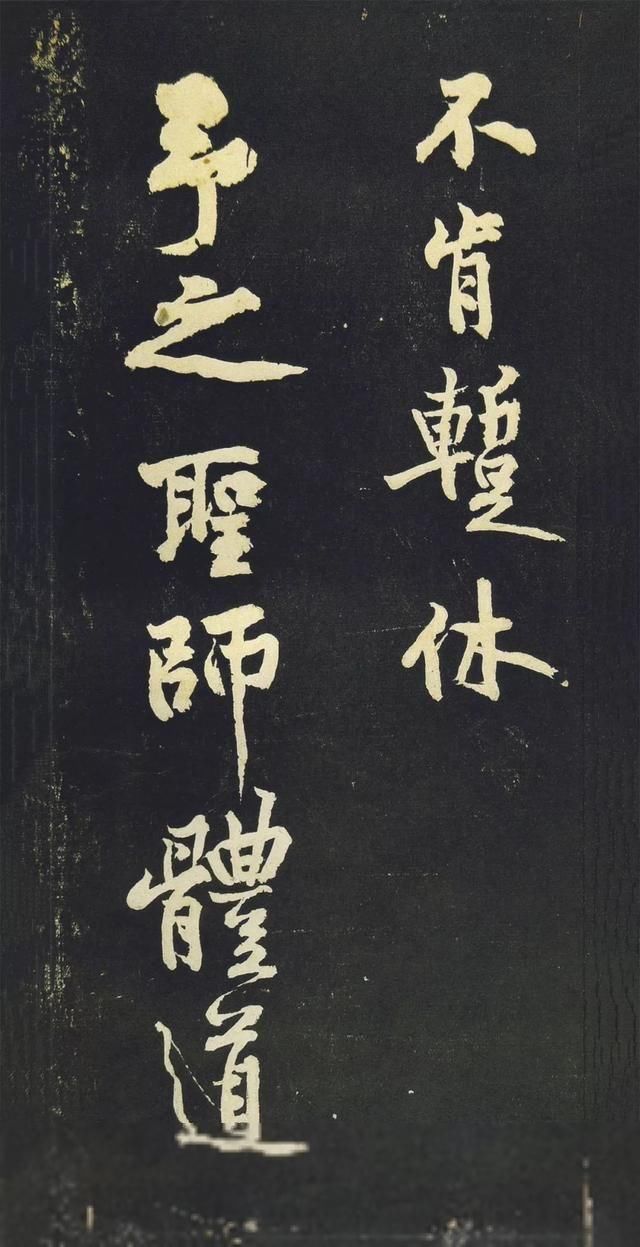 不肯蹔休
予之聖師體道